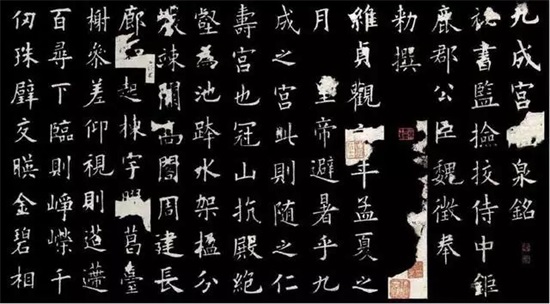 九成宮泉銘
祕書監撿挍侍中鉅
鹿郡公臣魏徵奉
勅撰
維貞觀年孟夏之
月皇帝避暑乎九
成之宮此則隨之仁
壽宮也冠山抗殿絕
壑為池跨水架楹分
巖竦闕高閣周建長
廊起棟宇葛臺
榭參差仰視則迢遰
百尋下臨則崢嶸千
仞珠璧交暎金碧相